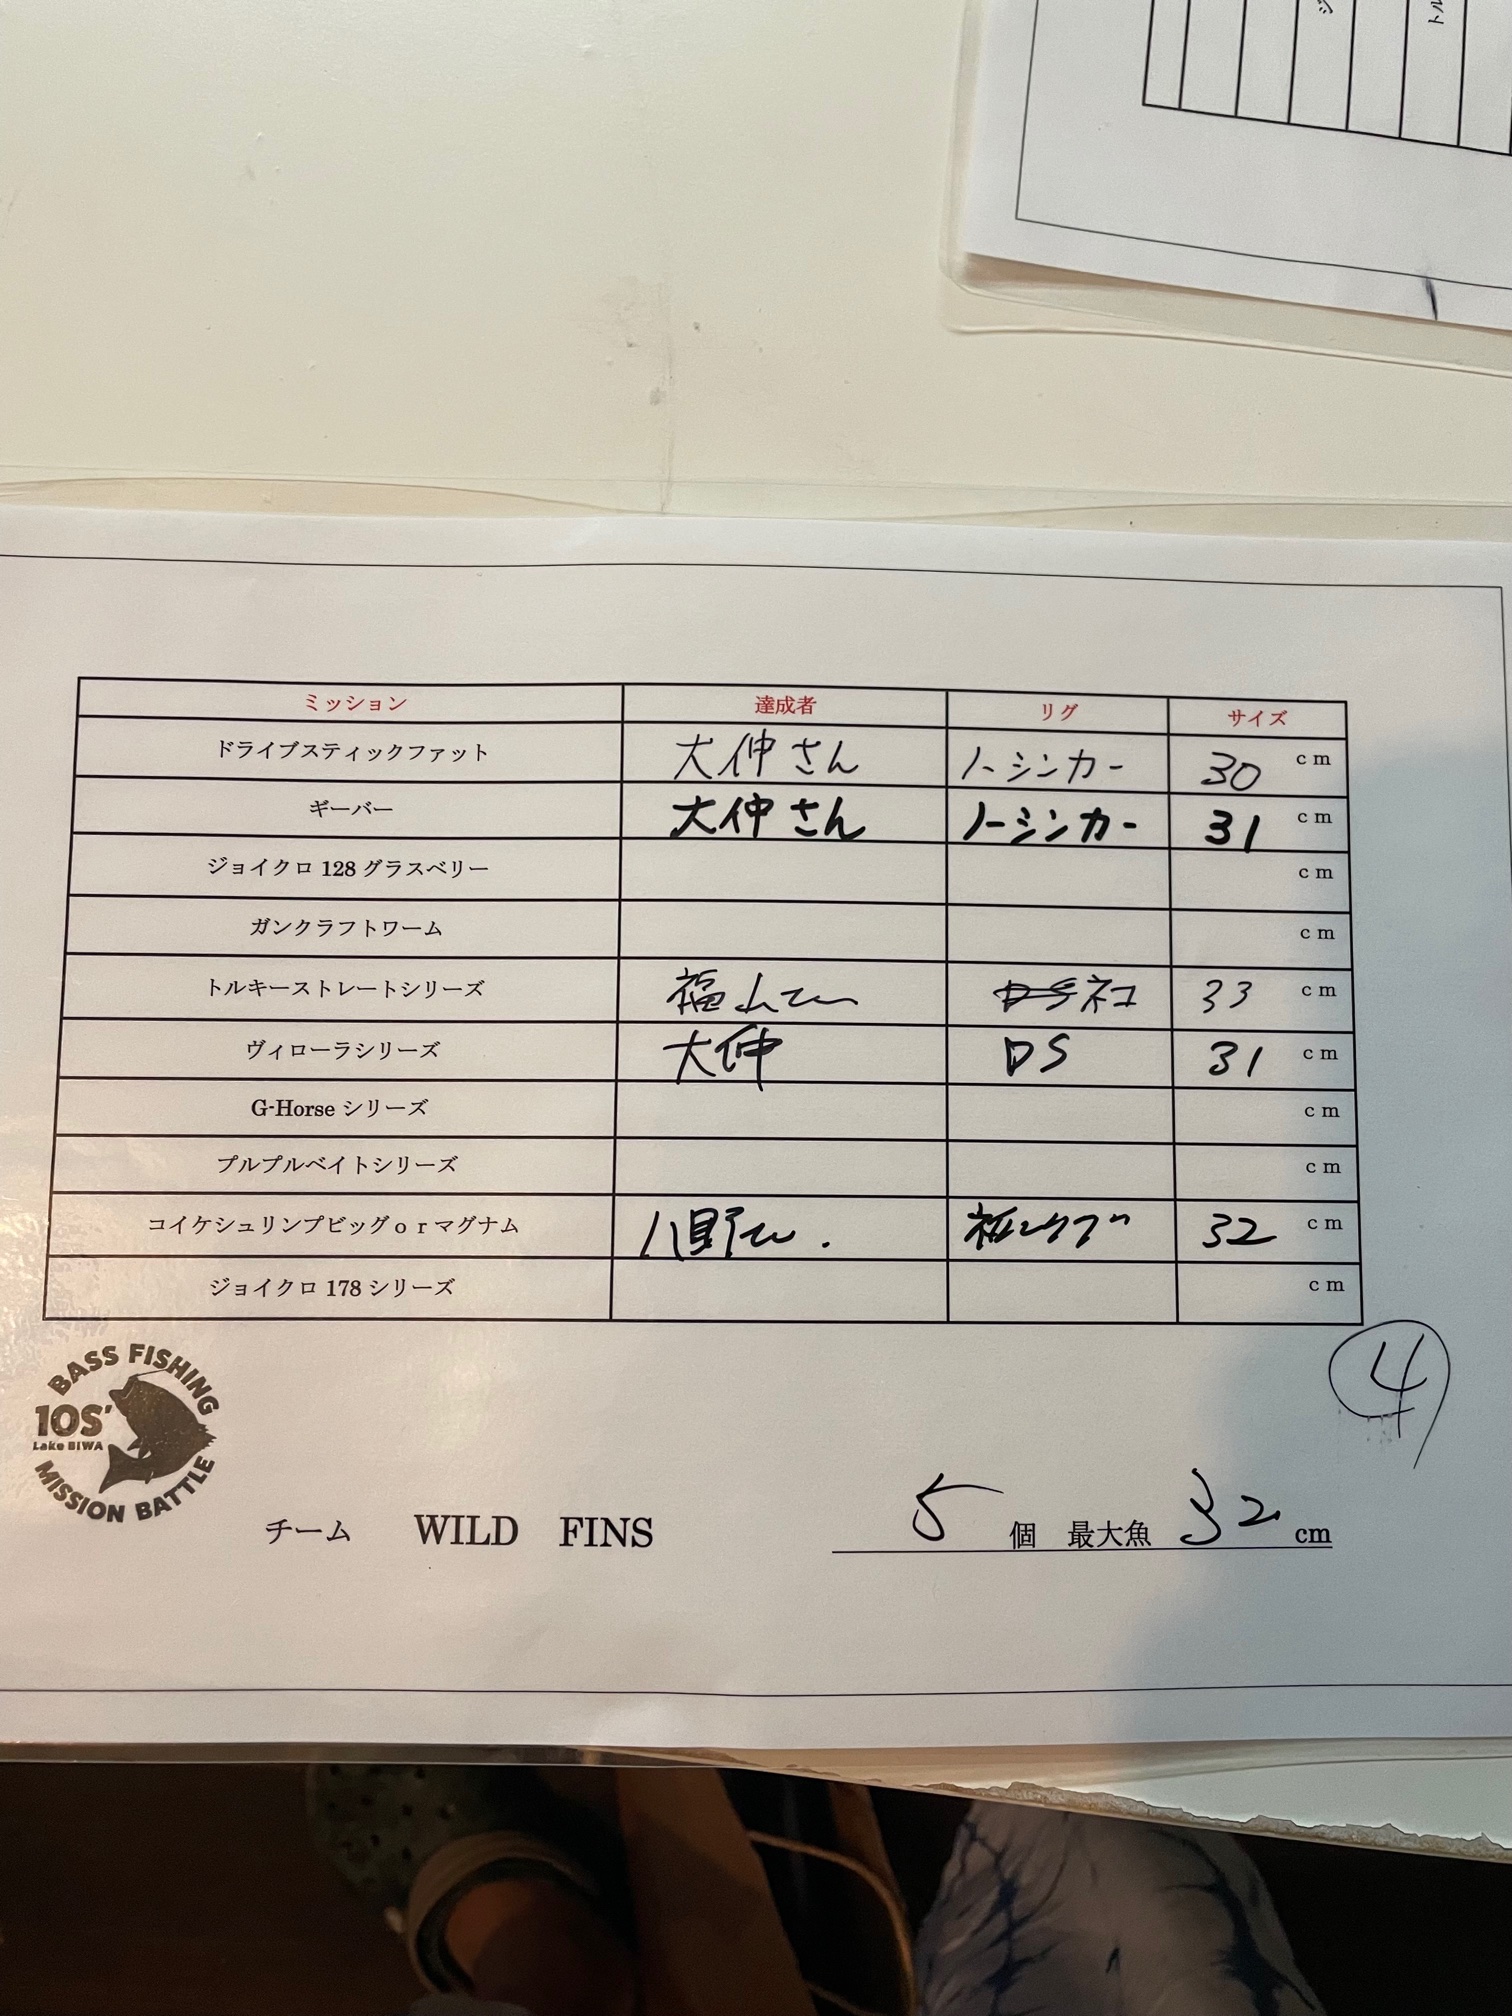 ジ
トル
ミッション 達成者 リグ サイズ
ドライブスティックファット 大仲さん ノーシンカー 30 cm
ギーバー 大仲さん ノーシンカー 31 cm
ジョイクロ 128 グラスベリー cm
ガンクラフトワーム cm
トルキーストレートシリーズ 福山さん ネコ 33 cm
ヴィローラシリーズ 大仲 DS 31 cm
G-Horse シリーズ cm
プルプルベイトシリーズ cm
コイケシュリンプビッグ or マグナム 32 cm
ジョイクロ 178 シリーズ cm
4
BASS FISHING
10S'
Lake BIWA
MISSION BATTLE
チーム WILD FINS 5 個 最大魚 32 cm